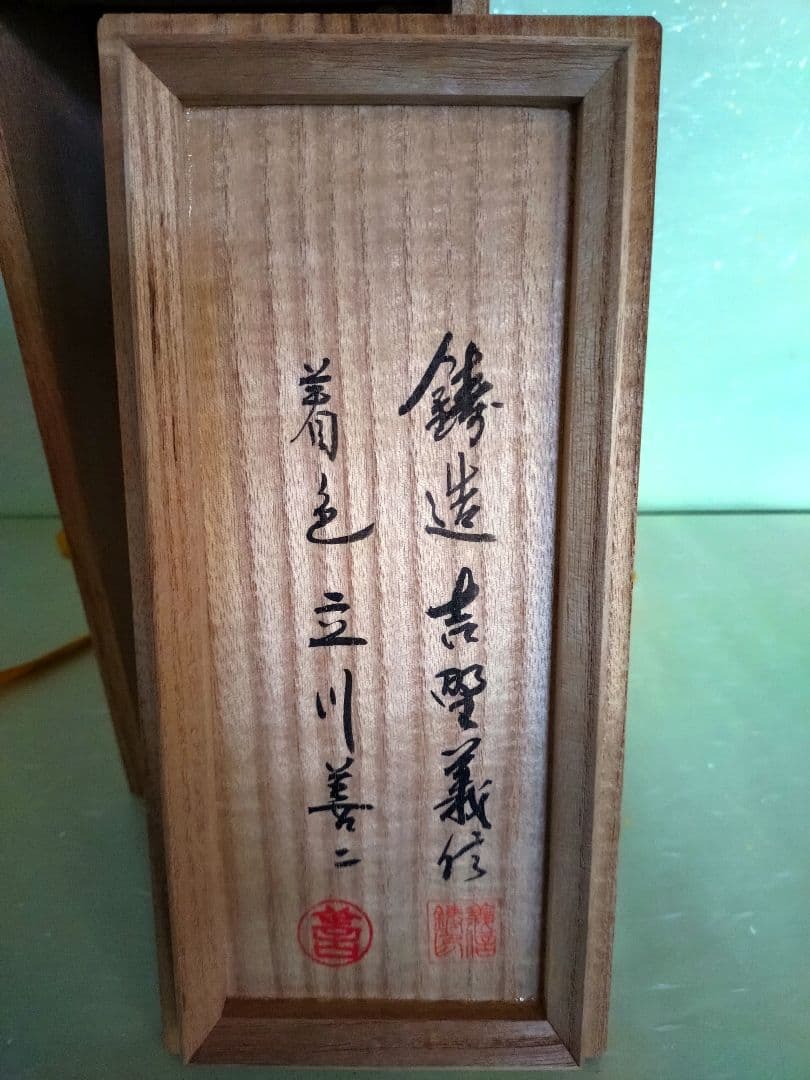 鋳造 吉野義信
着色 立川善二